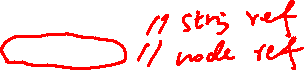 // string ref
// node ref